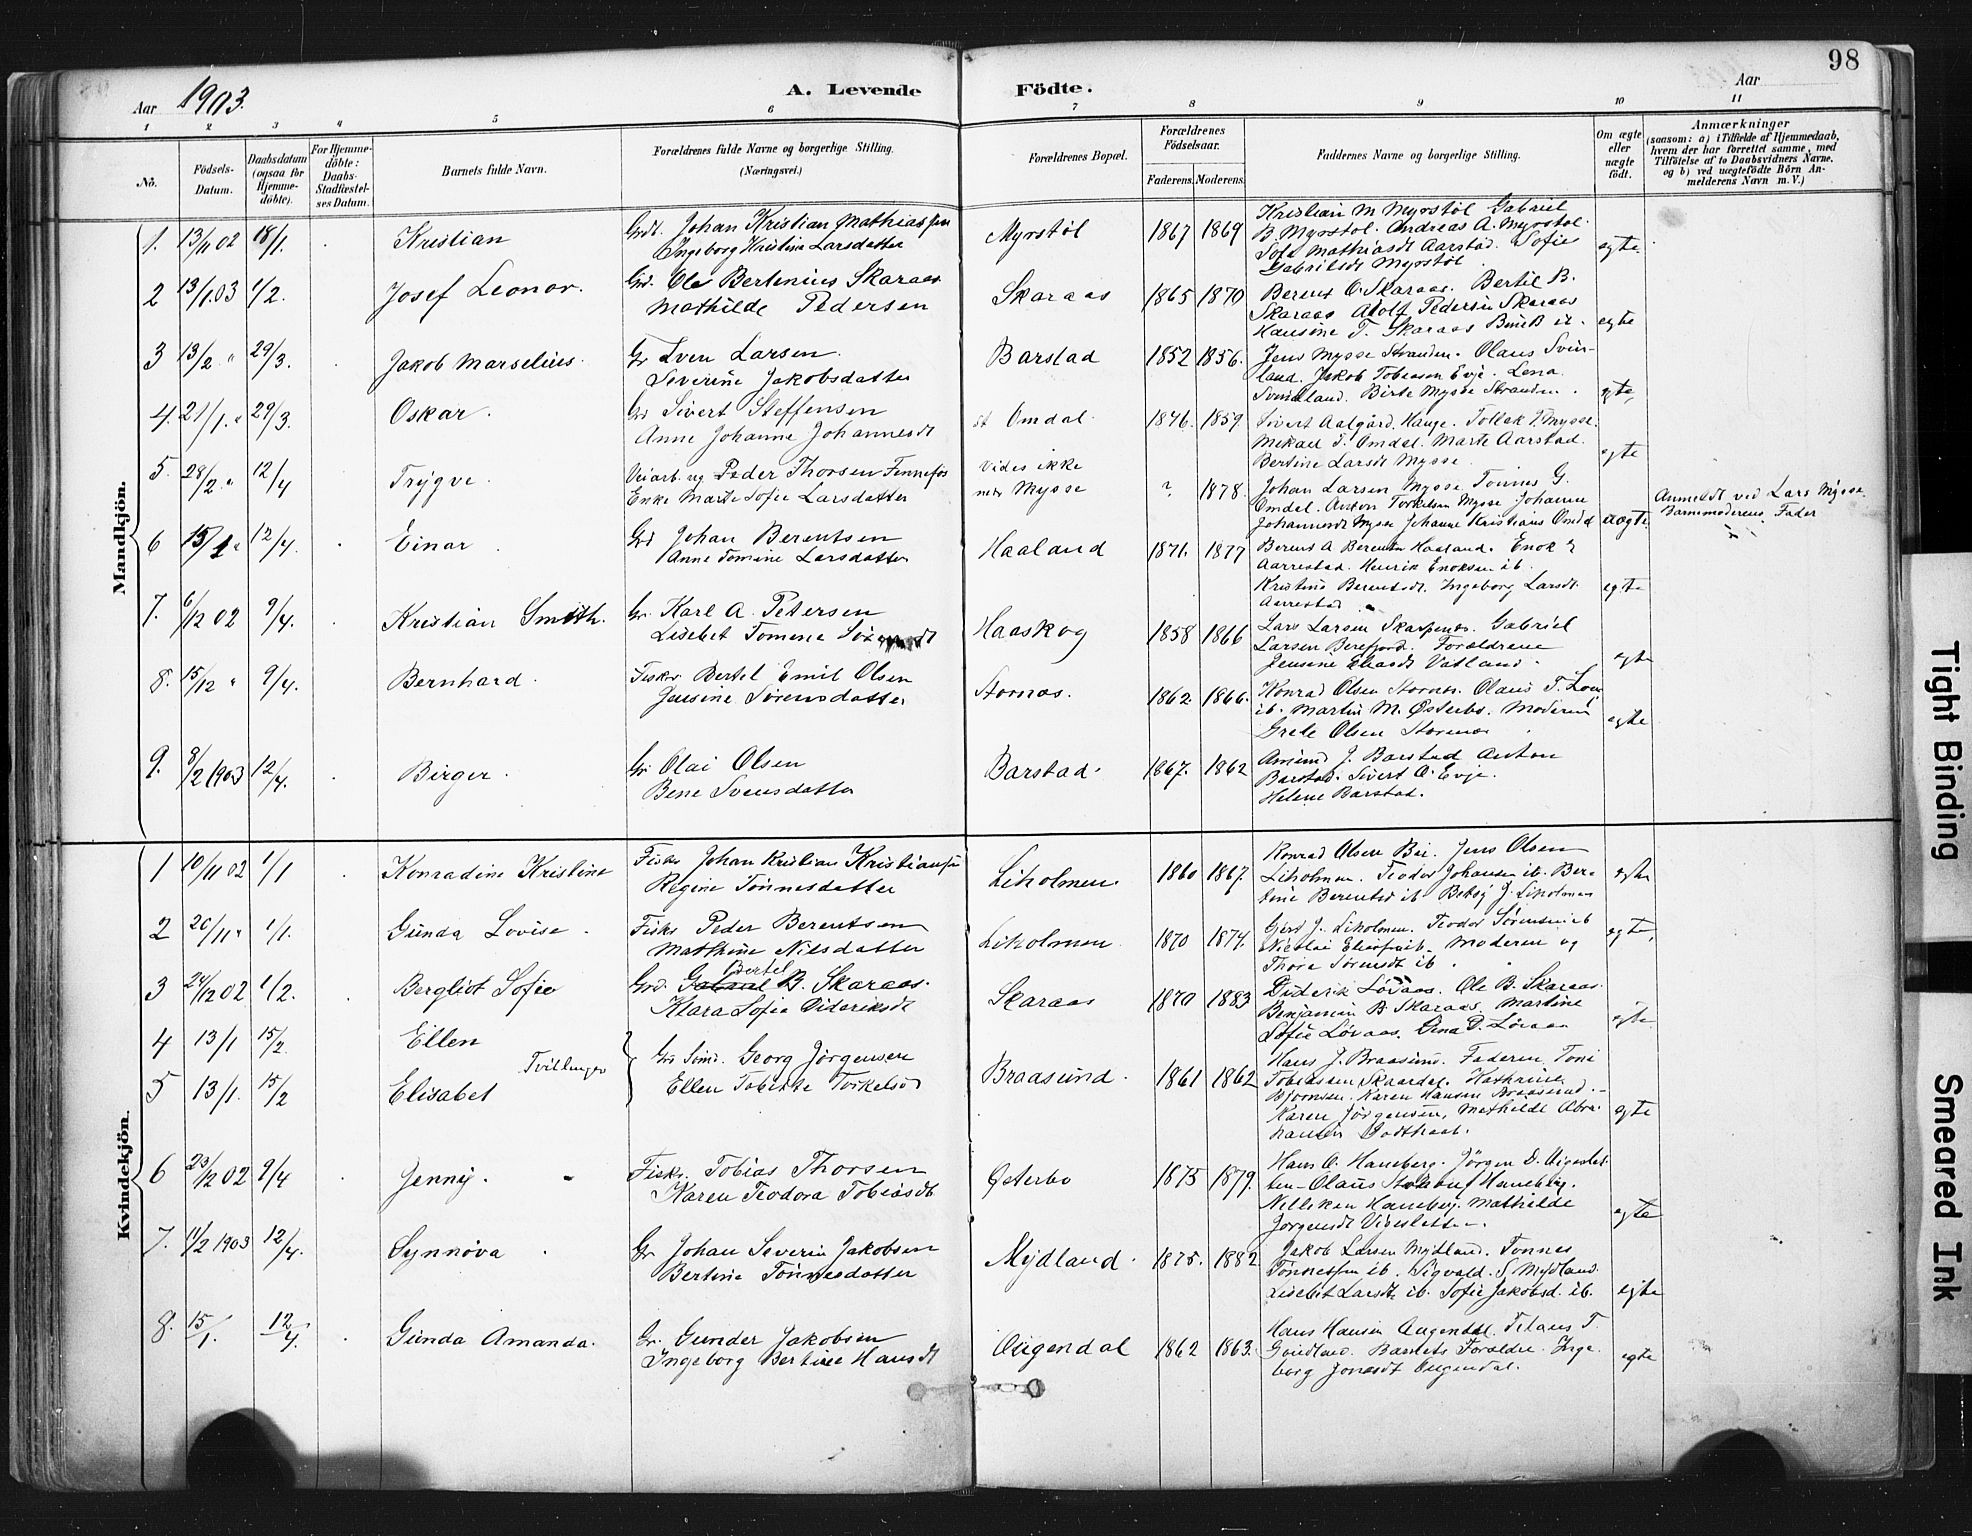 98
Aar 1903.
A. Levende Födte.
Aar
1 2 3 4 5 6 7 8 9 10 11
No.
Födsels-Datum.
Daabsdatum (ogsaa for Hjemmedöbte).
For Hjemmedöbte: Daabs-Stadfæstelses Datum.
Barnets fulde Navn.
Forældrenes fulde Navne og borgerlige Stilling. (Næringsvei.)
Forældrenes Bopæl.
Forældrenes Födselsaar.
Faderens. Moderens.
Faddernes Navne og borgerlige Stilling.
Om ægte eller uægte födt.
Anmærkninger
(saasom: a) i Tilfælde af Hjemmedaab, hvem der har forrettet samme, med Tilföielse af to Daabsvidners Navne, og b) ved uægtefödte Börn Anmelderens Navn m. V.)
Mandkjön.
1. 13/11 02 18/1. Kristian
Grdt. Johan Kristian Mathiassen
Ingeborg Kristine Larsdatter
Myrstöl 1867 1869
Kristian M Myrstöl Gabriel
B. Myrstöl. Andreas A. Myrstöl.
Sofe Mathiasdt Aarstad. Sofie
Gabrielsdt Myrstöl
egte.
2 13/1.03 1/2. Josef Leonor.
Grd. Ole Bertinius Skaraas
Mathilde Pedersen
Skaraas 1865 1870
Berent O. Skaraas. Bertil B.
Skaraas Adolf Pedersen Skaraas
Hansine T. Skaraas
egte
3 13/2 " 29/3. Jakob Marselius.
Gr Sven Larsen.
Severine Jakobsdatter
Barstad 1852 1856.
Jens Mysse Stranden. Olaus Svin-
land. Jakob Tobiasen Evje. Lena
Svindland. Birte Mysse Stranden.
egte,
4. 21/1. " 29/3. Oskar.
Gr Sivert Steffensen
Anne Johanne Johannesdt
st Omdal 1846. 1859.
Sivert Aalgård. Hauge. Tollak T. Mysse.
Mikael T. Omdal. Marte Aarstad.
Bertine Larsdt Mysse.
egte
5. 28/2. " 12/4 Trygve.
Veiarb. ug Peder Thorsen Fennefos
Enke Marte Sofie Larsdatter
vides ikke
Mysse ?. 1878.
Johan Larsen Mysse Tönnes G.
Omdal. Anton Torkelsen Mysse Johanne
Johannesdt Mysse Johanne Kristians Omdal
uegte.
Anmeldt ved Lars Mysse.
Barnemoderens Fader
6 15/1 " 12/4. Einar.
Grd Johan Berentsen
Anne Tomine Larsdatter
Haaland 1871. 1877
Berent A Berentsen Haaland. Enok
Aarrestad. Henrik Enoksen ib.
Kristine Berentsdt. Ingeborg Larsdt.
Aarrestad
egte
7. 6/12 02 9/4. Kristian Smith.
Gr. Karl A. Petersen
Lisebet Tomene
Haaskog 1858 1866
Lars Larsen Skarpenes. Gabriel
Larsen Berefjord. Forældrene
Jensine Eliasdt Vatland.
egte
8. 15/12 " 9/4. Bernhard.
Fisker Bertel Emil Olsen
Jensine Sörensdatter
Stornæs. 1862. 1866.
Konrad Olsen Stornes. Olaus T.
ib. Martin M. Østerbø. Moderen
Grete Olsen Stornæs
egte
9. 8/2 1903 12/4. Birger.
Gr. Olai Olsen
Bene Svensdatter
Barstad. 1867. 1862
Amund J. Barstad Anton
Barstad. Sivert O. Evje.
Helene Barstad.
Kvindekjön.
1 10/11 02 1/1 Konradine Kristine
Fisker Johan Kristian Kristiansen
Regine Tönnesdatter
Liholmen. 1860 1867.
Konrad Olsen Bø. Jens Olsen
Liholmen. Teodor Johansen ib. Ber-
tine Berentsdt ib Betsy J. Liholmen
egte
2 20/11 " 1/1. Gunda Lovise.
Fisker Peder Berentsen
Mathine Nilsdatter
Liholmen 1870 1874.
Gert J. Liholmen. Teodor Sörensen ib
Nicolai ib. Moderen og
Thora Sörensdt ib
egte,
3 24/12 02 1/2. Bergliot Sofie
Grd. Gabriel Bertel B. Skaraas.
Klara Sofie Dideriksdt
Skaraas 1870 1883
Diderik Lövaas. Ole B. Skaraas.
Benjamin B. Skaraas. Martine
Sofie Lövaas. Gina D. Lövaas
egte
4 13/1 15/2 Ellen
5 13/1. 15/2 Elisabet
Tvillinger
Gr Sömd. Georg Jörgensen
Ellen Tobiette Torkelsen
Braasund. 1861 1862
Hans J. Braasund. Faderen Toni
Tobiassen Skaardal. Kathrine
Bjornsen. Karen Hansen Braasund.
Karen Jörgensen, Mathilde Abra-
hamsen Godthaab.
egte
6 23/12 02 9/4 Jenny.
Fiskr. Tobias Thorsen
Karen Teodora Tobiasdt
Østerbø 1875 1879.
Hans O. Haneberg. Jörgen D. Vigeslet-
ten. Olaus Haneberg.
Nelliken Haneberg. Mathilde
Jörgensdt Vigesletten.
egte
7. 11/2 1903 12/4. Synnöva.
Gr Johan Severin Jakobsen
Bertine Tönnesdatter
Mydland. 1875. 1882
Jakob Larsen Mydland. Tönnes
Tönnessen ib. Sigvald. S. Mydland.
Lisebet Larsdt ib. Sofie Jakobsd. ib.
egte
8. 15/1. 12/4. Gunda Amanda.
Gr. Gunder Jakobsen
Ingeborg Bertine Hansdt
Ougendal 1862 1863.
Hans Hansen Ougendal. Titans T.
Goidland. Barnets Forældre. Inge-
borg Jonasdt Ougendal.
egte
Tight Binding
Smeared Ink